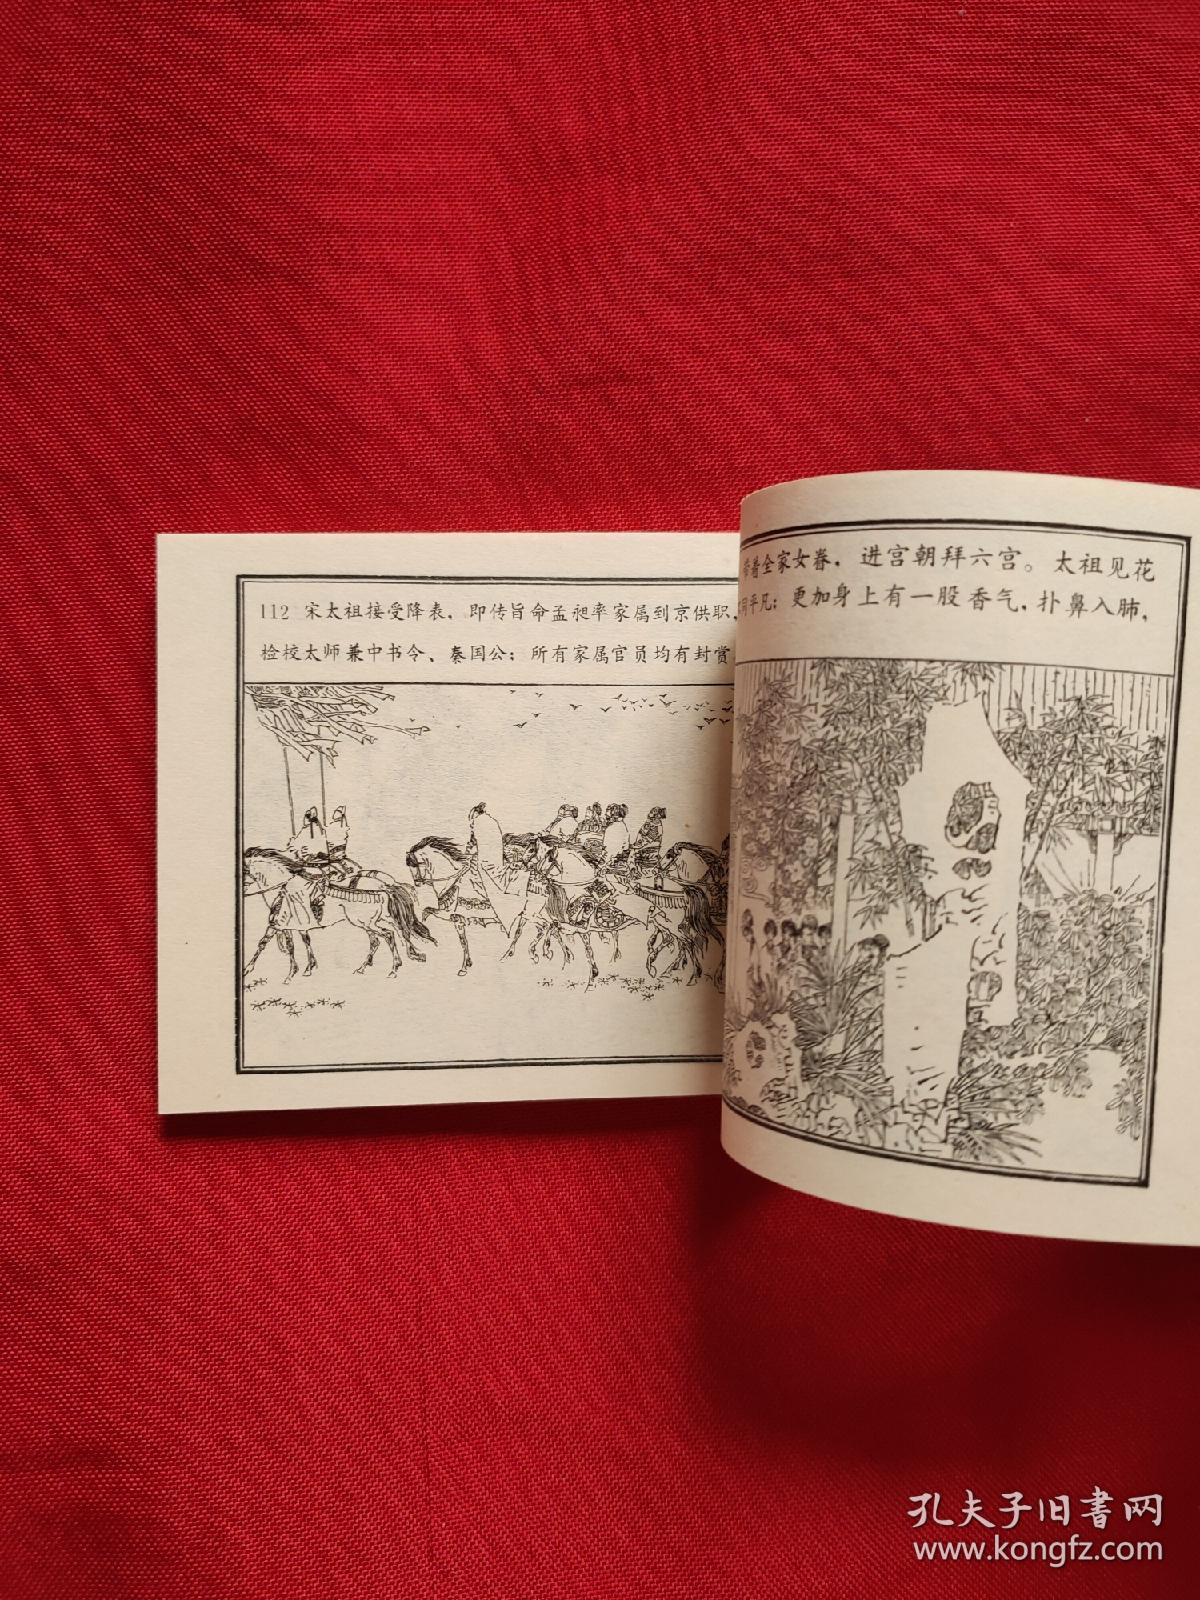 112 宋太祖接受降表，即传旨命孟昶率家属到京供职，
检校太师兼中书令、秦国公；所有家属官员均有封赏
着全家女眷，进宫朝拜六宫。太祖见花
同平凡；更加身上有一股香气，扑鼻入肺，
孔夫子旧书网
www.kongfz.com